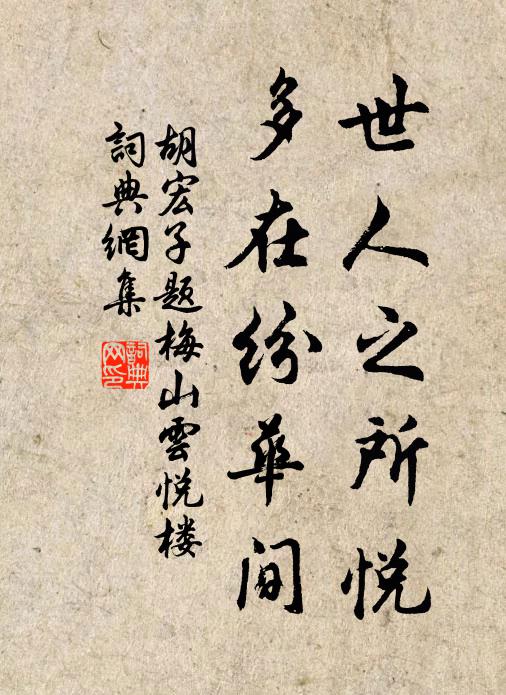 世人之所悦
多在纷華间
胡宏子题梅山雲悦楼
詞典網集
詞典
网印